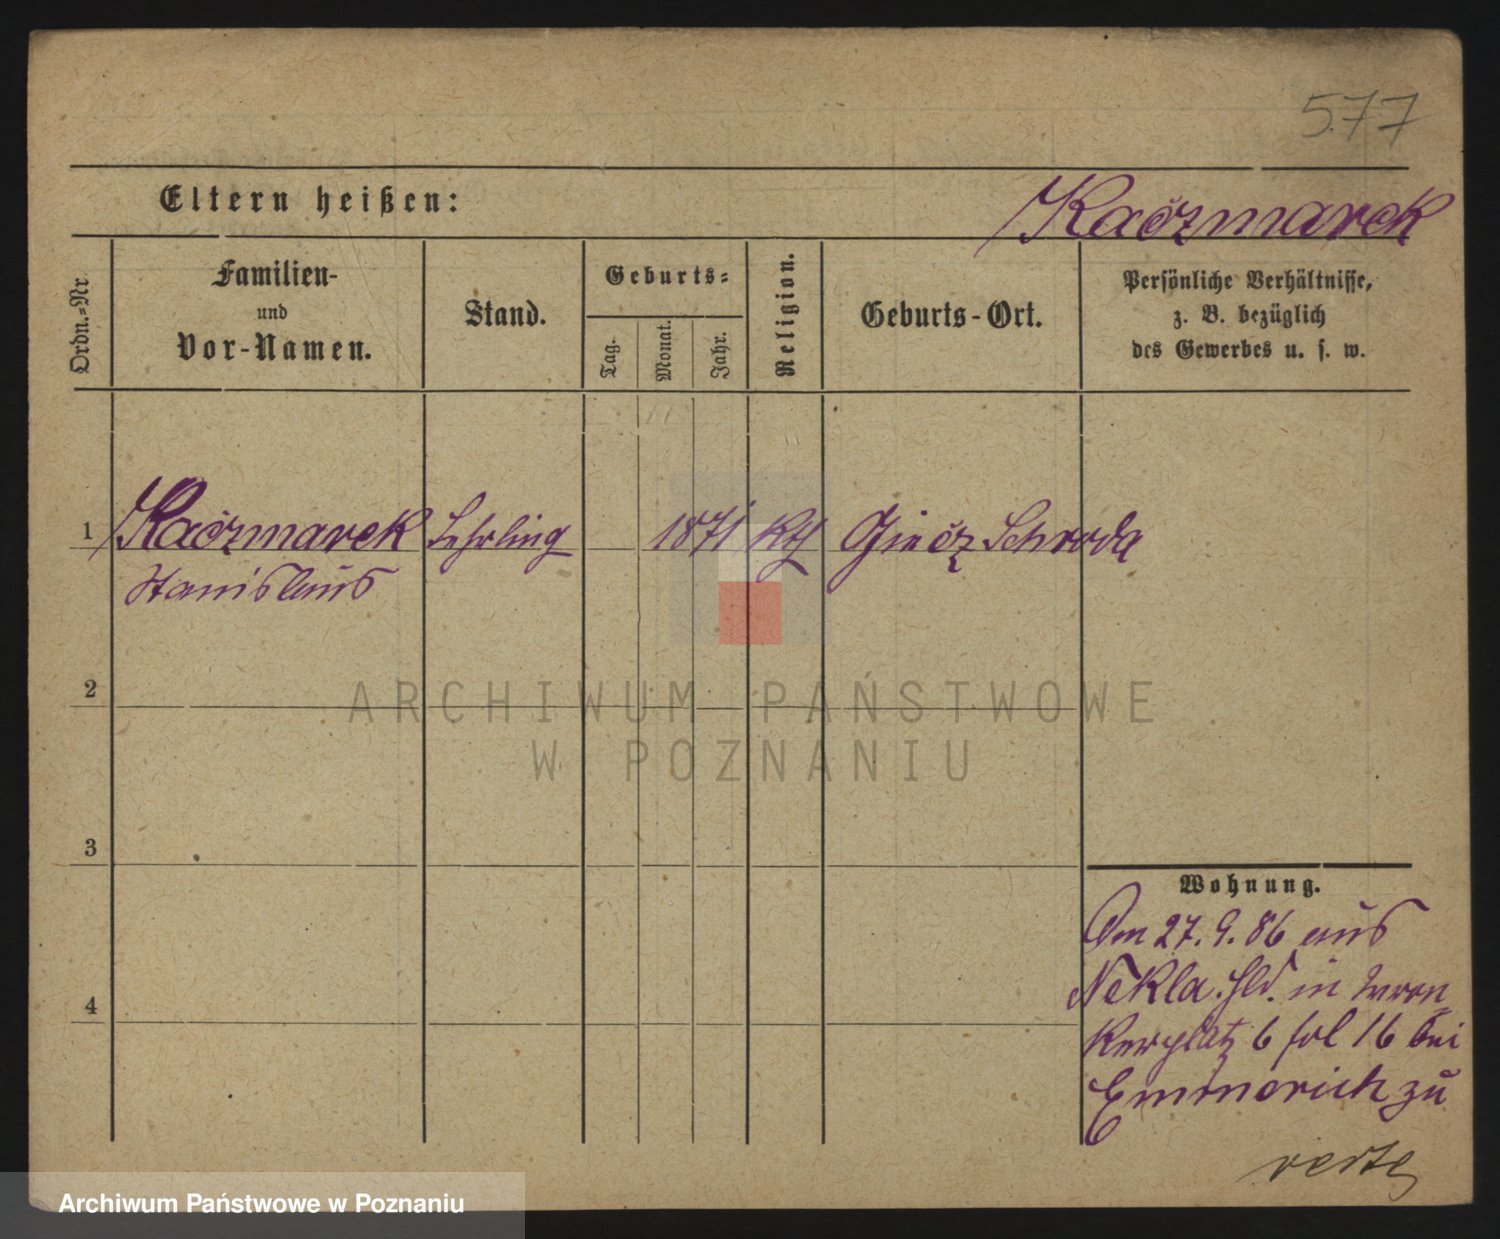 577
Eltern heißen:
Kaczmarek
Ordn.-Nr.
Familien-
und
Vor-Namen.
Stand.
Geburts-
Tag.
Monat.
Jahr.
Religion.
Geburts-Ort.
Persönliche Verhältnisse,
z. B. bezüglich
des Gewerbes u. s. w.
1 Kaczmarek Lehrling 1871 kth Giecz Schroda
Stanislaus
2
ARCHIWUM PAŃSTWOWE
W POZNANIU
3
Wohnung.
Am 27.9.86 aus
Nekla. Hld. in
4
kerplatz 6 fol 16 bei
Emmerich zu
verte
Archiwum Państwowe w Poznaniu